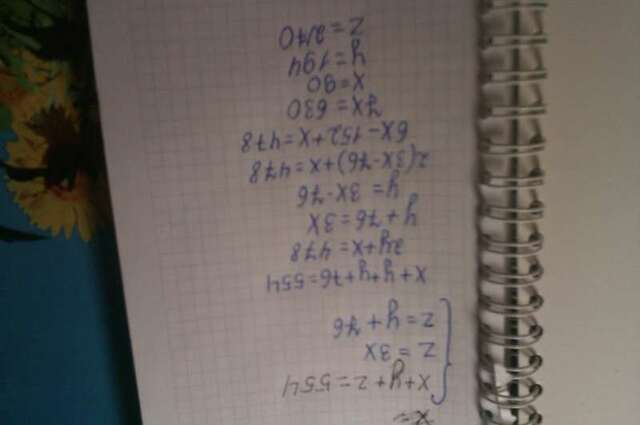 x=
x+y+z=554
z=3x
z=y+76
x+y+y+76=554
2y+x=478
y+76=3x
y=3x-76
2(3x-76)+x=478
6x-152+x=478
7x=630
x=90
y=194
z=270